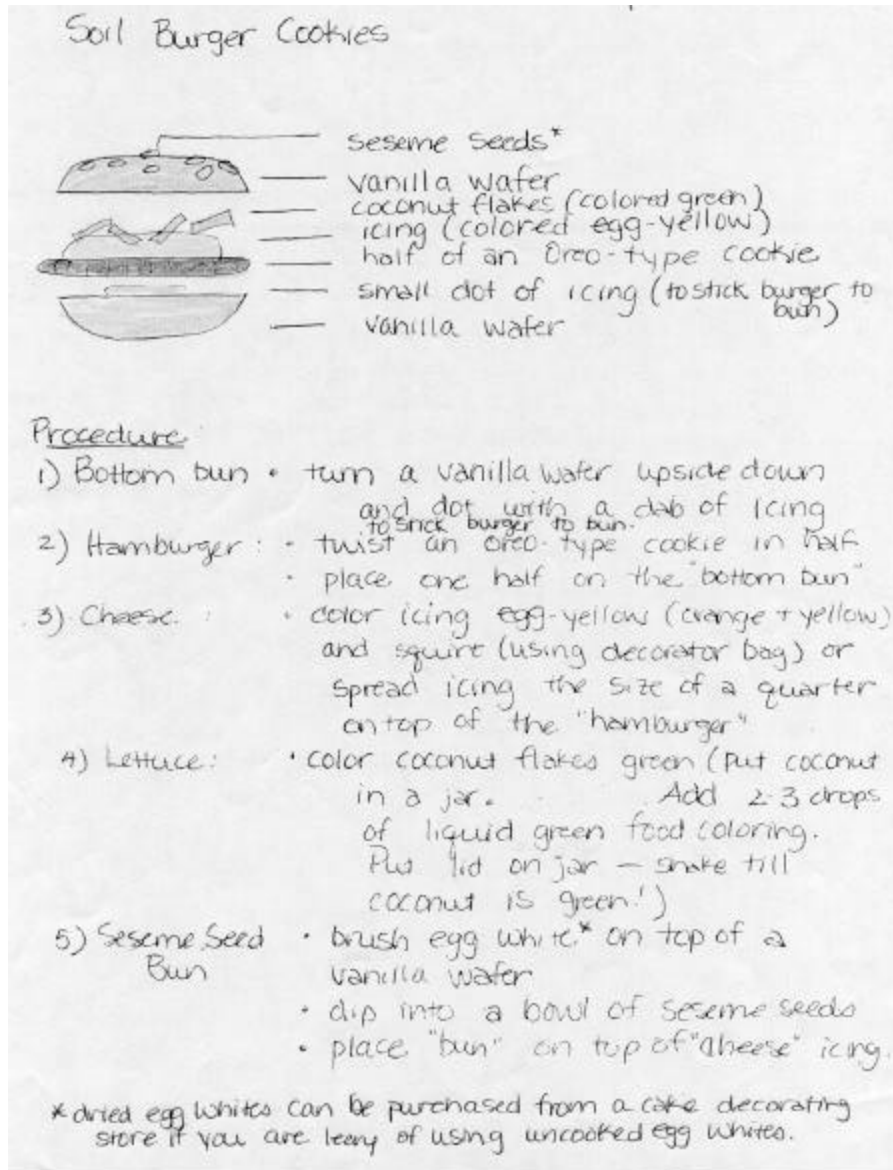 Soil Burger Cookies
seseme seeds*
vanilla wafer
coconut flakes (colored green)
icing (colored egg-yellow)
half of an Oreo-type cookie
small dot of icing (to stick burger to
bun)
vanilla wafer
Procedure:
1) Bottom bun • turn a vanilla wafer upside down
and dot with a dab of icing
to stick burger to bun.
2) Hamburger: • twist an oreo-type cookie in half
• place one half on the "bottom bun"
3) Cheese: • color icing egg-yellow (orange + yellow)
and squirt (using decorator bag) or
spread icing the size of a quarter
on top of the "hamburger"
4) Lettuce: • color coconut flakes green (put coconut
in a jar. Add 2-3 drops
of liquid green food coloring.
Put lid on jar – shake till
coconut is green!)
5) Seseme Seed • brush egg white* on top of a
Bun
vanilla wafer
• dip into a bowl of seseme seeds
• place "bun" on top of "cheese" icing.
* dried egg whites can be purchased from a cake decorating
store if you are leery of using uncooked egg whites.